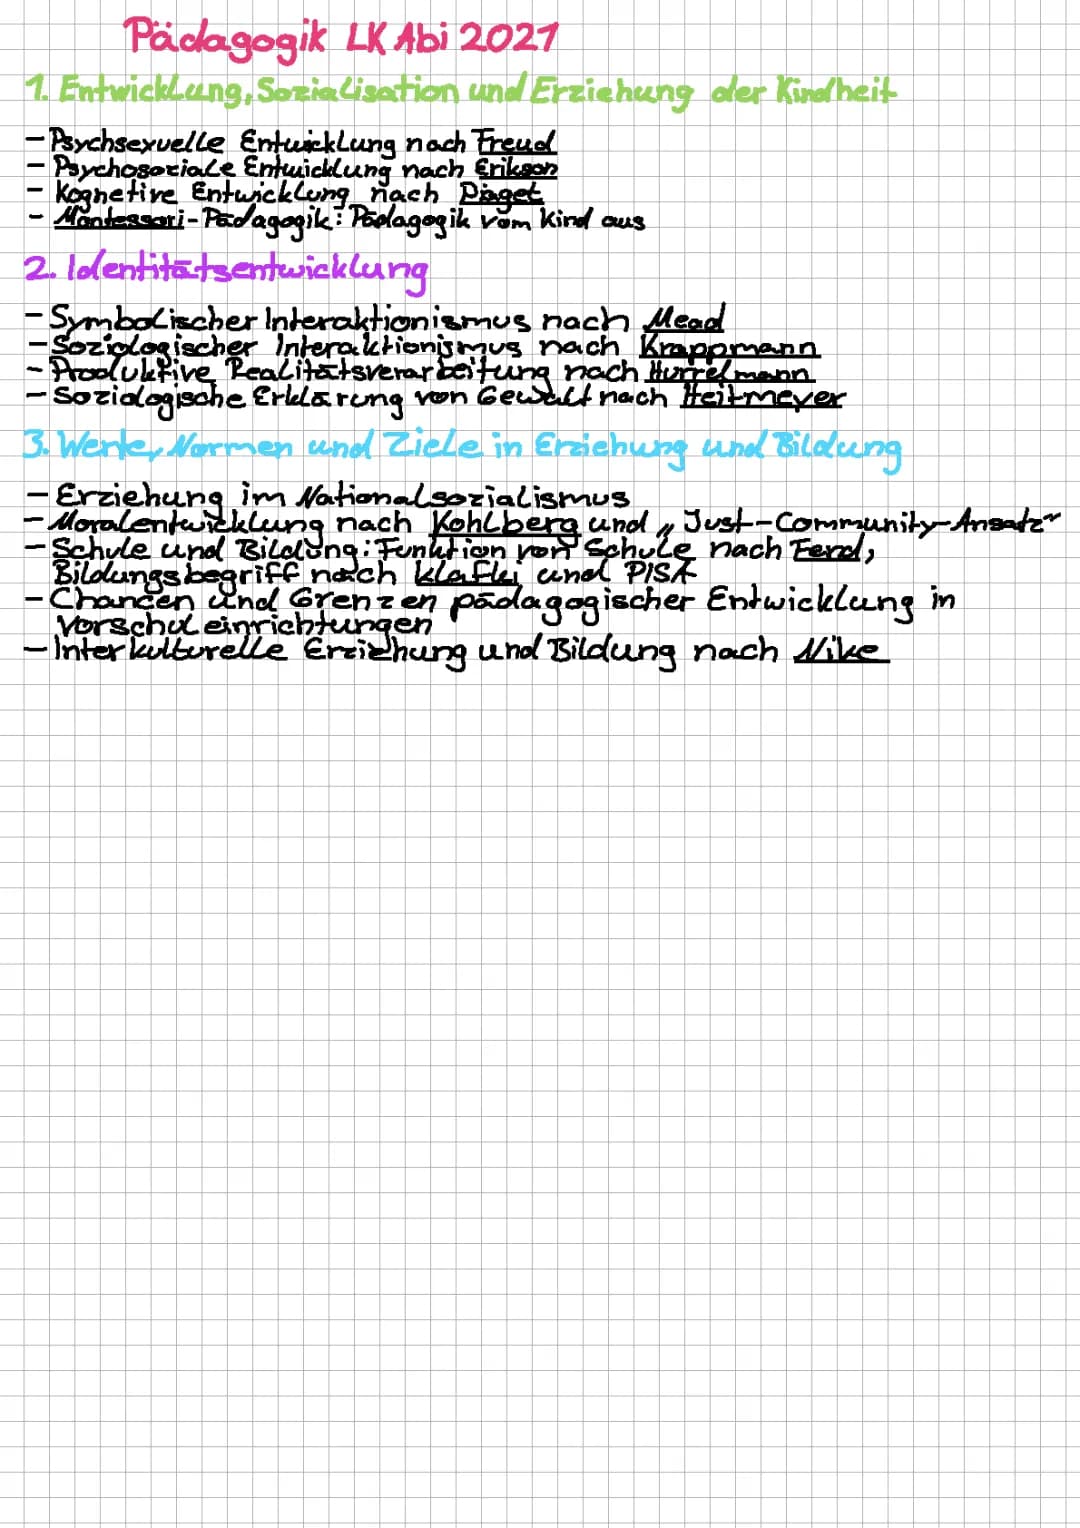 Pädagogik LK Abi 2021
1. Entwicklung, Sozialisation und Erziehung der Kindheit
- Psychsexuelle Entwicklung nach Freud
- Psychosoziale Entwicklung nach Erikson
- Kognetive Entwicklung nach Piaget
- Montessori-Pädagogik: Pädagogik vom Kind aus
2. Identitätsentwicklung
- Symbolischer Interaktionismus nach Mead
- Soziologischer Interaktionismus nach Krappmann
- Produktive Realitätsverarbeitung nach Hurrelmann
- Soziologische Erklärung von Gewalt nach Heitmeyer
3. Werte, Normen und Ziele in Erziehung und Bildung
- Erziehung im Nationalsozialismus
- Moralentwicklung nach Kohlberg und „Just-Community-Ansatz"
- Schule und Bildung: Funktion von Schule nach Fend,
Bildungsbegriff nach Klafki und PISA
- Chancen und Grenzen pädagogischer Entwicklung in
Vorschuleinrichtungen
- Interkulturelle Erziehung und Bildung nach Nike